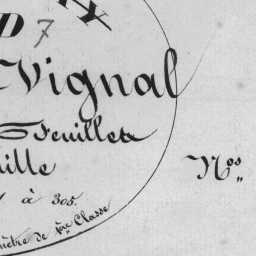 D 7
Vignal
Feuillets
ille
à 305.
mètre de 1ère Classe
Nos „